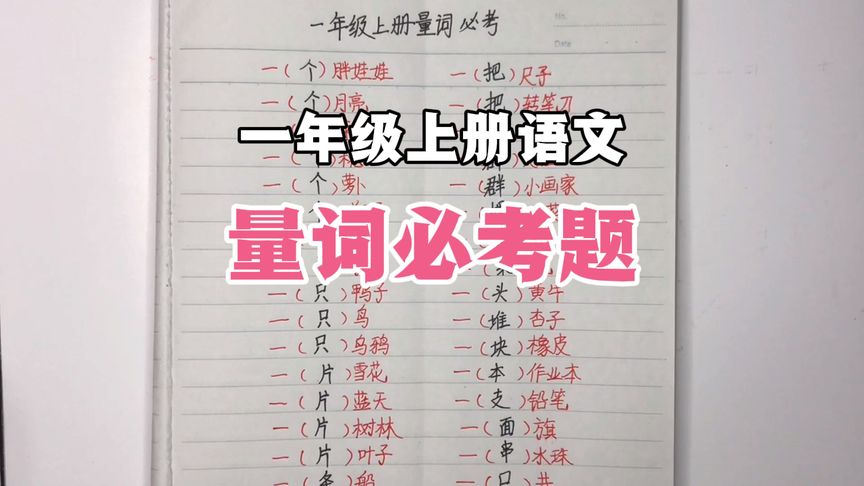 No.
Date
一年级上册量词必考
一(个)胖娃娃 一(把)尺子
一(个)月亮 一(把)转笔刀
一年级上册语文
一(个)萝卜 一(群)小画家
量词必考题
一(只)鸭子 一(头)黄牛
一(只)鸟 一(堆)杏子
一(只)乌鸦 一(块)橡皮
一(片)雪花 一(本)作业本
一(片)蓝天 一(支)铅笔
一(片)树林 一(面)旗
一(片)叶子 一(串)水珠
一(条)船 一(口)井